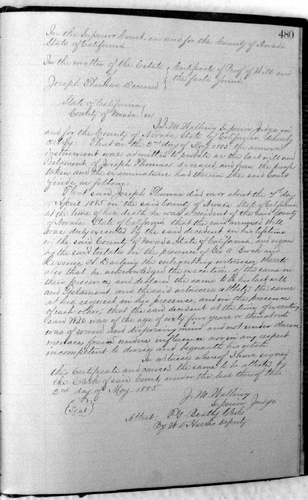 480
In the Superior Court, in and for the County of Nevada
State of California
In the matter of the Estate } Certificate of Proof of Will and
of the facts found
Joseph Thomas Deceased
State of California
County of Nevada ss
I J. M. Walling Superior Judge in
and for the County of Nevada, State of California, do hereby
certify: That on the 2nd day of May 1885 the annexed
instrument was admitted to probate as the last will and
Testament of Joseph Thomas deceased, and from the proofs
taken and the examination had therein the said Court
finds as follows:
That said Joseph Thomas died on or about the day
of April 1885 in the said County of Nevada State of California
at the time of his death he was a resident of the County
of Nevada State of California That the said annexed Will
was duly executed by the said decedent in his lifetime
in the said County of Nevada State of California, and signed
by the said testator in the presence of
the subscribing witnesses thereto
also that he acknowledged the execution of the same in
their presence, and declared the same to be his last will
and Testament, and the said witnesses attested the same
at his request in his presence, and in the presence
of each other, that the said decedent at the time of executing
said Will was of the age of years, that he
was of sound and disposing mind and not under duress
menace fraud undue influence nor in any respect
incompetent to devise and bequeath his estate
In witness whereof I have signed
this Certificate and caused the same to be attested by
the Clerk of said Court under the seal thereof this
2nd day of May 1885
J. M. Walling
(Seal) Superior Judge
Attest: Clerk
By Deputy